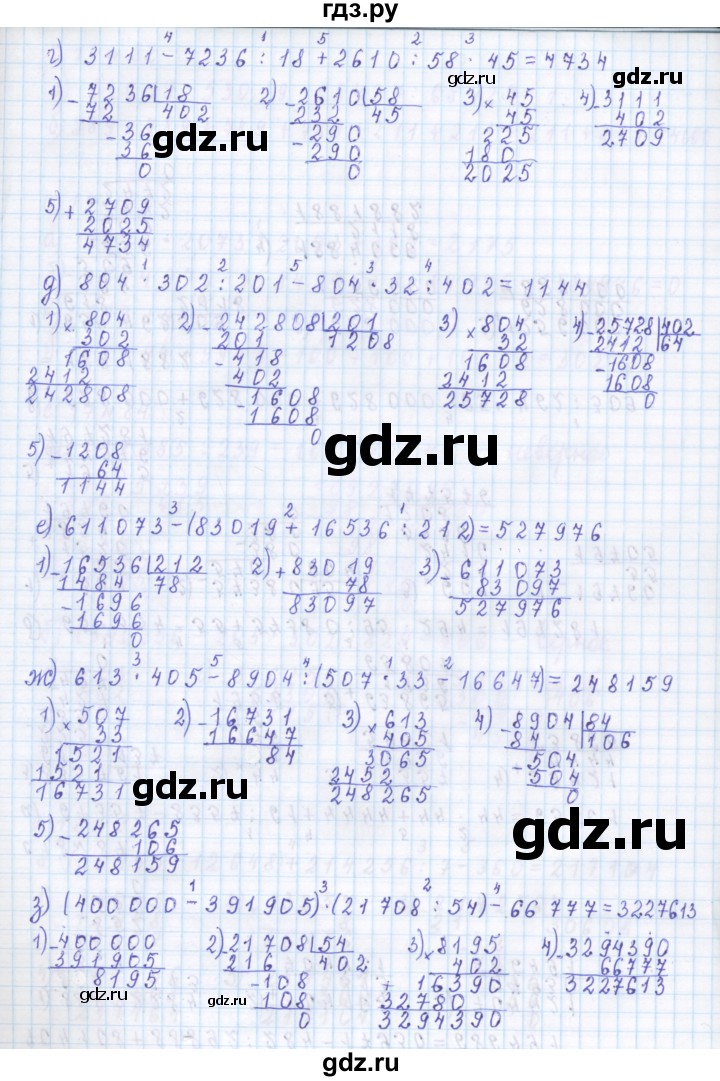 гдз.ру
г) 3111 - 7236 : 18 + 2610 : 58 · 45 = 4734
4 1 5 2 3
1) - 7236 | 18 2) - 2610 | 58 3) × 45 4) - 3111
72 402 232 45 45 402
- 36 - 290 225 2709
36 290 180
0 0 2025
gdz.ru
5) + 2709
2025
4734
д) 804 · 302 : 201 - 804 · 32 : 402 = 1144
1 2 5 3 4
1) × 804 2) - 242808 | 201 3) × 804 4) - 25728 | 402
302 201 1208 32 2412 64
1608 - 418 1608 - 1608
2412 402 2412 1608
242808 - 1608 25728 0
1608
0
gdz.ru
5) - 1208
64
1144
е) 611073 - (83019 + 16536 : 212) = 527976
3 2 1
1) - 16536 | 212 2) + 83019 3) - 611073
1484 78 78 83097
- 1696 83097 527976
1696
0
ж) 613 · 405 - 8904 : (507 · 33 - 16647) = 248159
3 5 4 1 2
1) × 507 2) - 16731 3) × 613 4) - 8904 | 84
33 16647 405 84 106
1521 84 3065 - 504
1521 2452 504
16731 248265 0
gdz.ru
gdz.ru
5) - 248265
106
248159
з) (400000 - 391905) · (21708 : 54) - 66777 = 3227613
1 3 2 4
1) - 400000 2) - 21708 | 54 3) × 8195 4) - 3294390
391905 216 402 402 66777
8195 - 108 + 16390 3227613
108 32780
0 3294390
gdz.ru
gdz.ru
gdz.ru
gdz.ru
gdz.ru